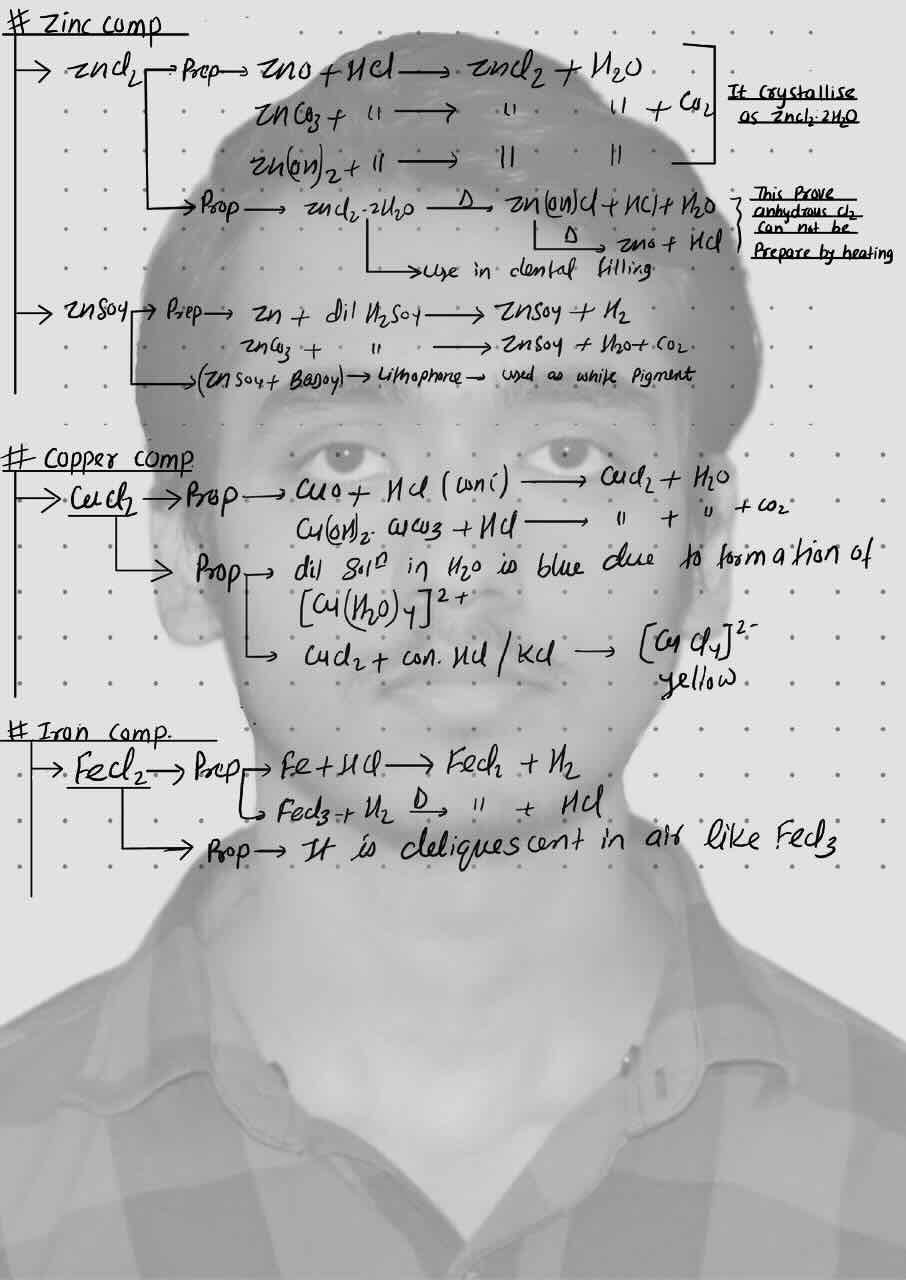 # Zinc comp
→ ZnCl2 → Prep → ZnO + HCl → ZnCl2 + H2O
ZnCO3 + " → " " + CO2
Zn(OH)2 + " → " "
It crystallise
as ZnCl2·2H2O
→ Prop → ZnCl2·2H2O —Δ→ Zn(OH)Cl + HCl + H2O
Δ → ZnO + HCl
→ use in dental filling
This Prove
anhydrous Cl2
can not be
Prepare by heating
→ ZnSO4 → Prep → Zn + dil H2SO4 → ZnSO4 + H2
ZnCO3 + " → ZnSO4 + H2O + CO2
→ (ZnSO4 + BaSO4) → Lithophone → used as white Pigment
# Copper comp
→ CuCl2 → Prop → CuO + HCl (conc) → CuCl2 + H2O
Cu(OH)2·CuCO3 + HCl → " + " + CO2
→ Prop → dil solⁿ in H2O is blue due to formation of
[Cu(H2O)4]2+
→ CuCl2 + con. HCl / KCl → [CuCl4]2-
yellow
# Iron comp.
→ FeCl2 → Prep → Fe + HCl → FeCl2 + H2
→ FeCl3 + H2 —Δ→ " + HCl
→ Prop → It is deliquescent in air like FeCl3